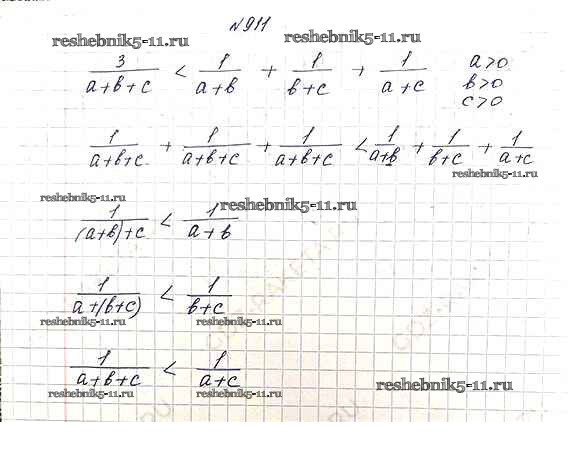 N911
reshebnik5-11.ru reshebnik5-11.ru
3/(a+b+c) < 1/(a+b) + 1/(b+c) + 1/(a+c) a>0
b>0
c>0
1/(a+b+c) + 1/(a+b+c) + 1/(a+b+c) < 1/(a+b) + 1/(b+c) + 1/(a+c)
reshebnik5-11.ru
reshebnik5-11.ru reshebnik5-11.ru
1/((a+b)+c) < 1/(a+b)
1/(a+(b+c)) < 1/(b+c)
reshebnik5-11.ru reshebnik5-11.ru
1/(a+b+c) < 1/(a+c)
reshebnik5-11.ru
reshebnik5-11.ru reshebnik5-11.ru